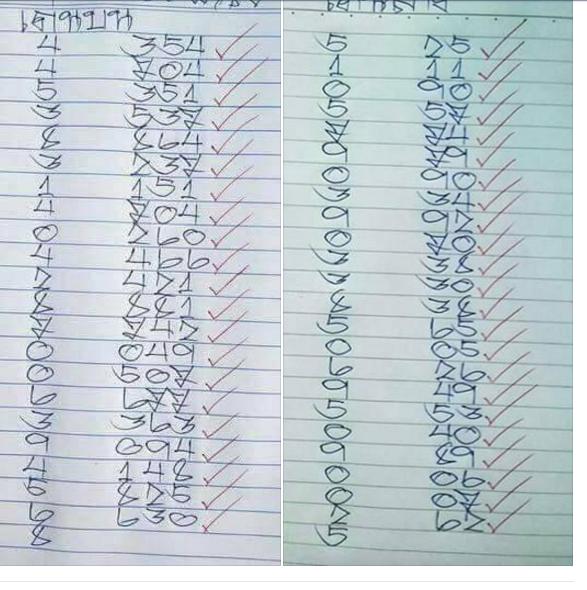 4 354
4 704
5 351
3 537
8 864
3 237
1 151
4 704
0 260
4 466
2 421
8 881
7 742
0 049
0 507
6 677
3 363
9 094
4 148
5 825
6 630
8
5 25
1 11
0 90
5 57
7 74
9 79
0 90
3 34
9 92
0 70
3 38
3 30
8 38
5 65
0 05
6 26
9 49
5 53
0 40
9 89
0 06
0 07
2 62
5